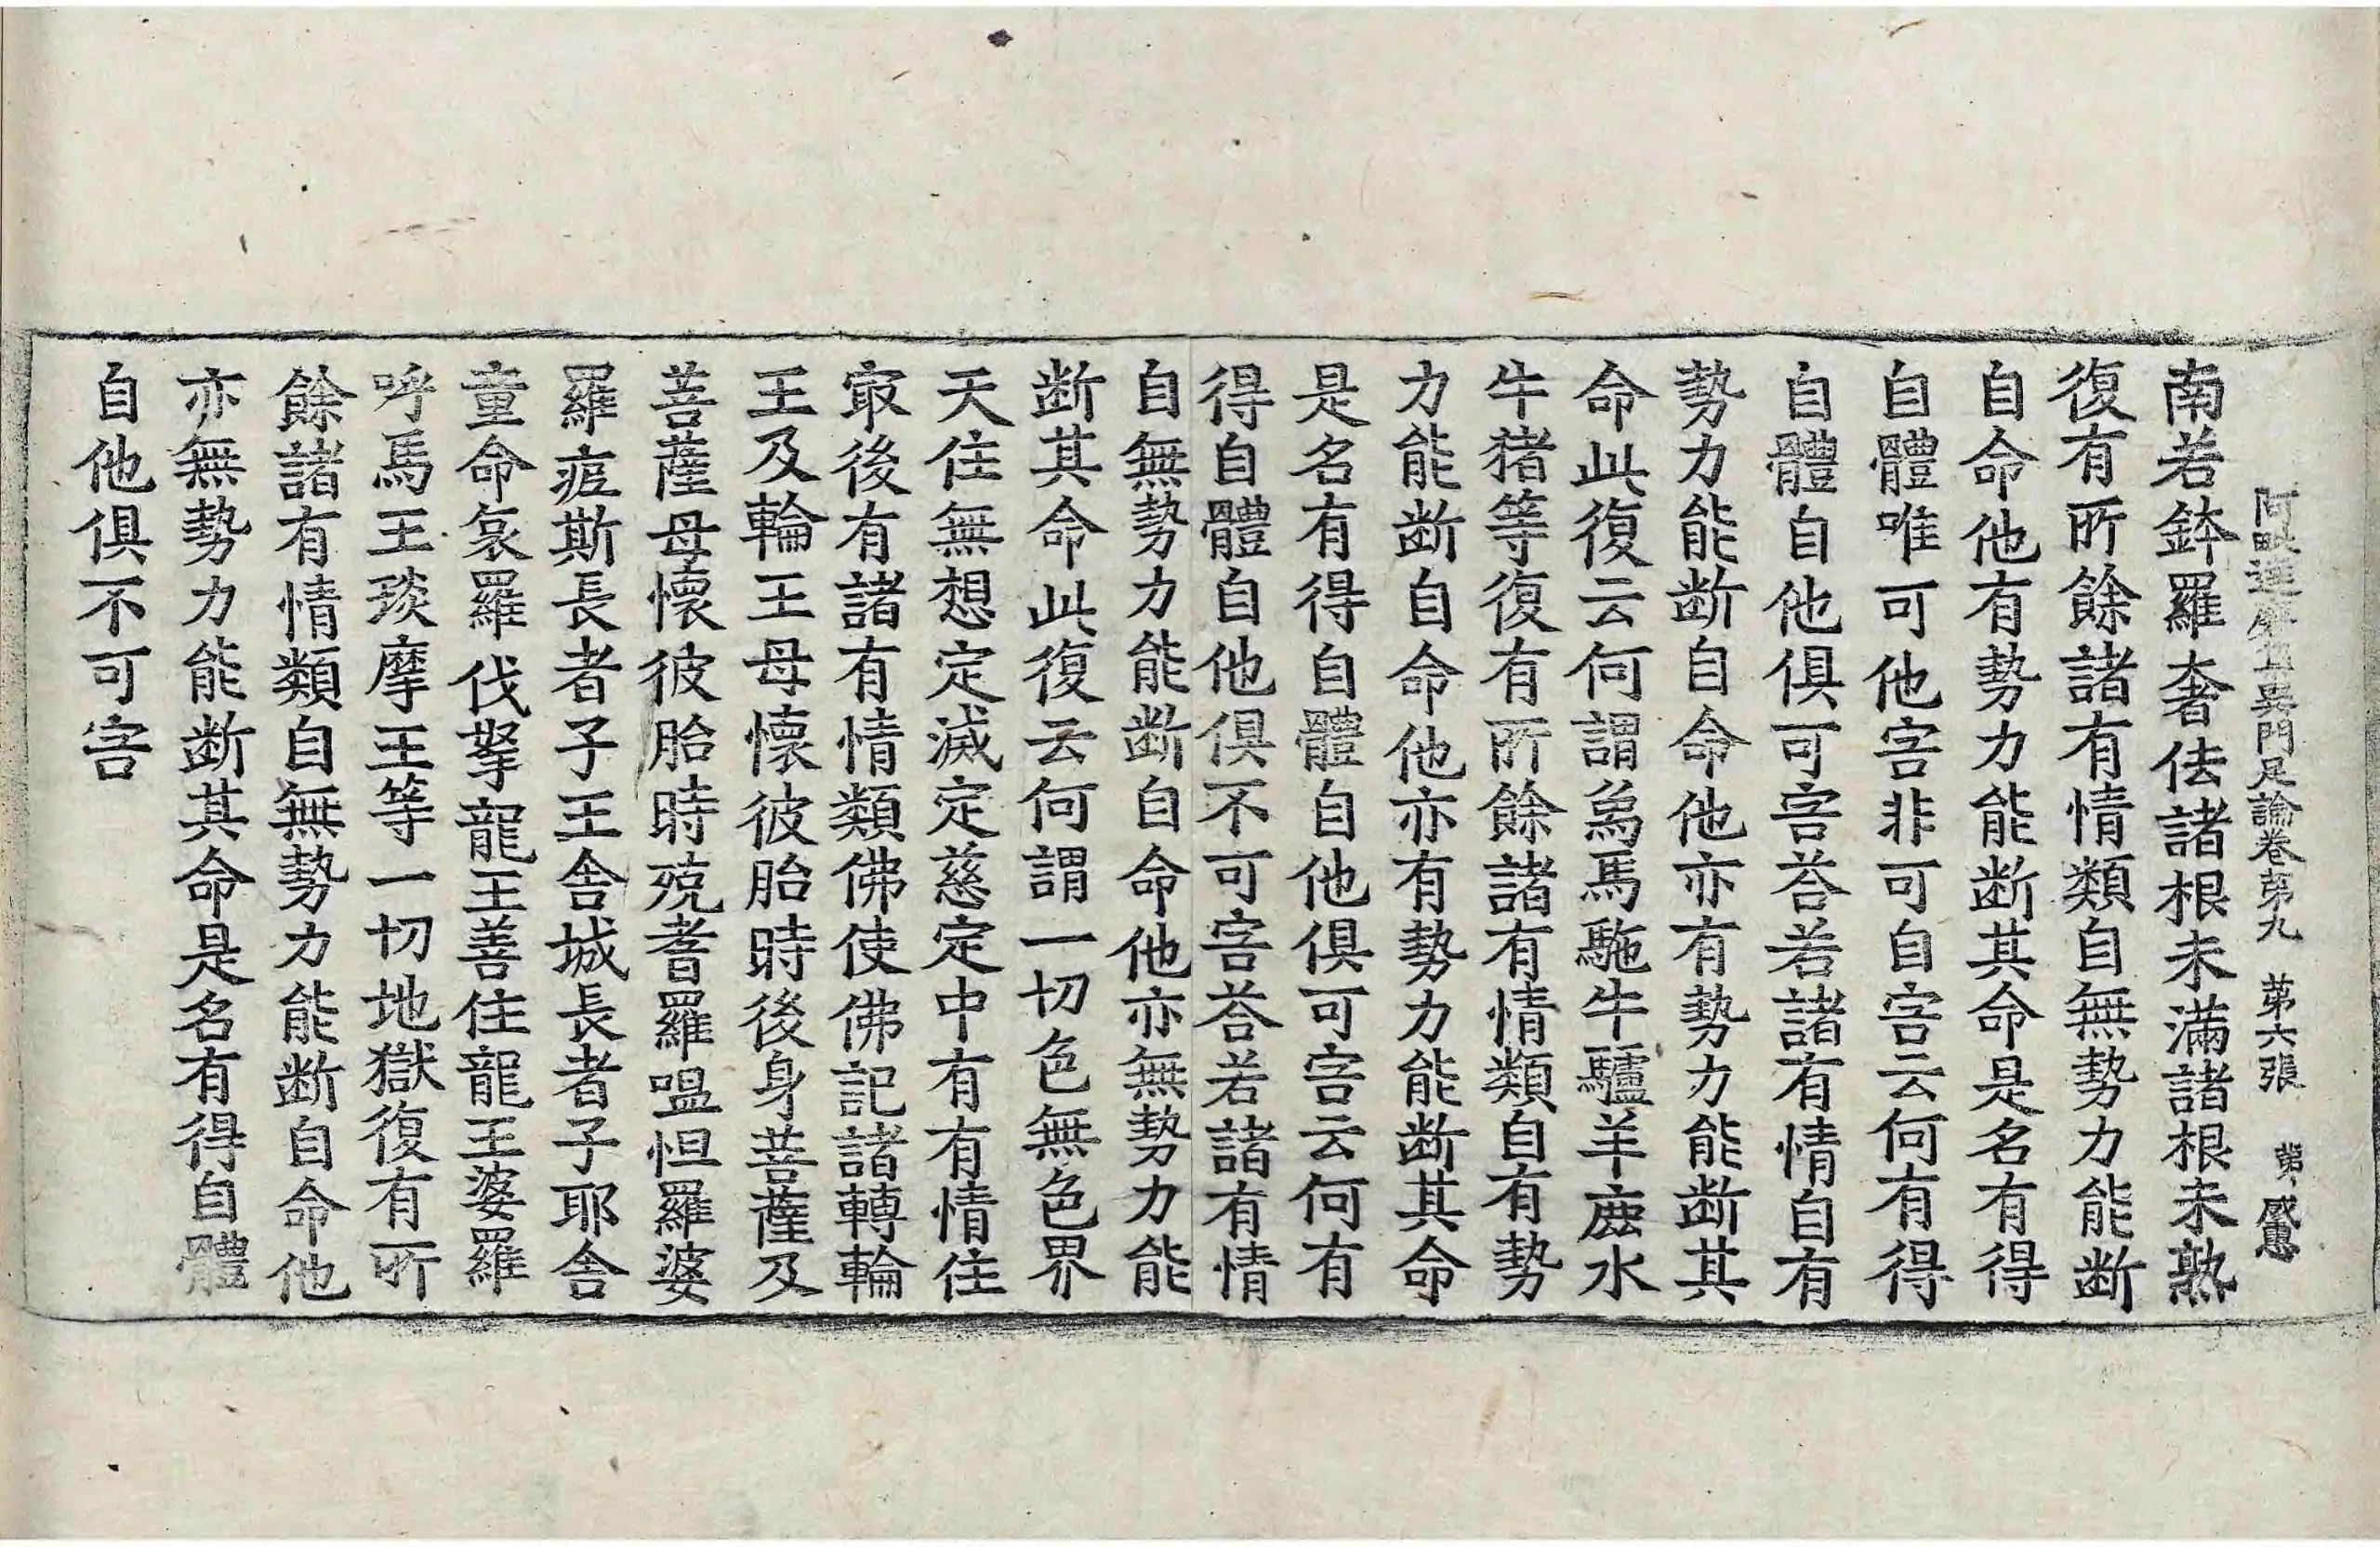 阿毗達磨集異門足論卷第九　第六張　感
南若鉢羅奢佉諸根未滿諸根未熟
復有所餘諸有情類自無勢力能断
自命他有勢力能断其命是名有得
自體唯可他害非可自害云何有得
自體自他俱可害荅若諸有情自有
勢力能断自命他亦有勢力能断其
命此復云何謂爲馬駞牛驢羊鹿水
牛猪等復有所餘諸有情類自有勢
力能断自命他亦有勢力能断其命
是名有得自體自他俱可害云何有
得自體自他俱不可害荅若諸有情
自無勢力能断自命他亦無勢力能
断其命此復云何謂一切色無色界
天住無想定滅定慈定中有有情住
㝡後有諸有情類佛使佛記諸轉輪
王及輪王母懷彼胎時後身菩薩及
菩薩母懷彼胎時殑耆羅嗢怛羅婆
羅痆斯長者子王舍城長者子耶舍
童命哀羅伐拏龍王善住龍王婆羅
呼馬王琰摩王等一切地獄復有所
餘諸有情類自無勢力能断自命他
亦無勢力能断其命是名有得自體
自他俱不可害